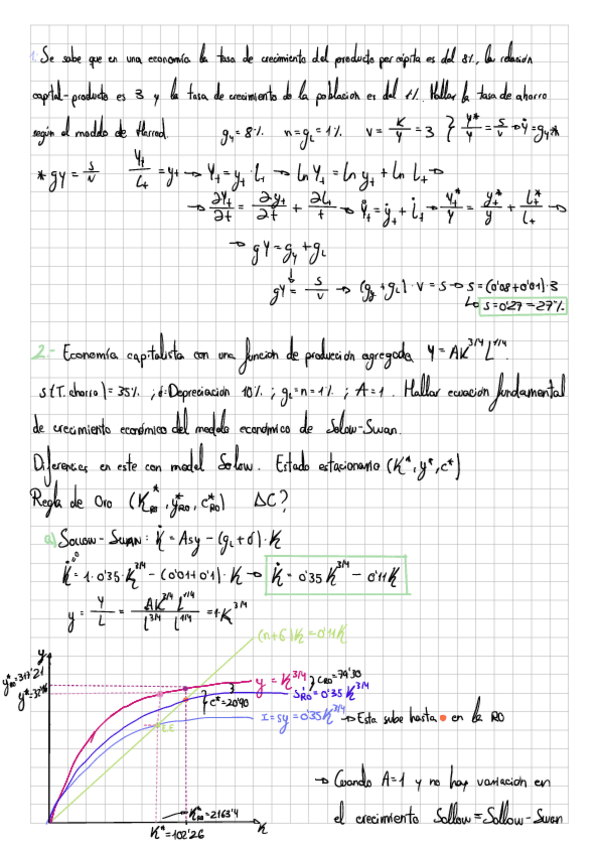 1. Se sabe que en una economía la tasa de crecimiento del producto per cápita es del 8%, la relación
capital-producto es 3 y la tasa de crecimiento de la población es del 1%. Hallar la tasa de ahorro
según el modelo de Harrod. gy = 8% n = gL = 1% v = K/Y = 3 } Ẏ*/Y = s/v → Ẏ = gy*
* gY = s/v Yt/Lt = yt → Yt = yt · Lt → ln Yt = ln yt + ln Lt →
→ ∂Yt/∂t = ∂yt/∂t + ∂Lt/t → Ẏt = ẏt + L̇t → Yt*/Y = yt*/y + Lt*/Lt →
→ gY = gy + gL
gY = s/v → (gy + gL) · v = s → s = (0'08 + 0'01) · 3
↳ s = 0'27 = 27%
2.- Economía capitalista con una función de producción agregada Y = AK^3/4 L^1/4.
s (T. ahorro) = 35%; δ = Depreciación 10%; gL = n = 1%; A = 1. Hallar ecuación fundamental
de crecimiento económico del modelo económico de Solow-Swan.
Diferencias en este con model Solow. Estado estacionario (K*, y*, c*)
Regla de Oro (K*RO, y*RO, c*RO) ΔC?
a) Sollow-Swan: K̇ = Asy − (gL + δ) · K
K̇ = 1 · 0'35 · K^3/4 − (0'01 + 0'1) · K → K̇ = 0'35 K^3/4 − 0'11 K
y = Y/L = AK^3/4 L^1/4 / L^3/4 L^1/4 = 1 K^3/4
(n+δ)K = 0'11K
y
y*RO = 317'21
y* = 32'16
y = K^3/4 } CRO = 79'30
sRO = 0'35 K^3/4
C* = 20'90
I = sy = 0'35 K^3/4 → Esta sube hasta • en la RO
E.E
→ Cuando A=1 y no hay variación en
el crecimiento Sollow = Sollow-Swan
K*RO = 2163'4
K* = 102'26
K